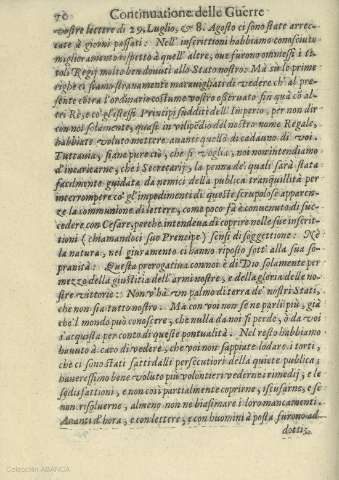 70 Continuatione delle Guerre
vostre lettere di 29. Luglio, & 8. Agosto ci sono state arre-
cate à giorni passati: Nell'inscrittioni habbiamo conosciuto
miglioramento rispetto à quell'altre, oue furono omisessi i ti
toli Regij molto ben douuti allo Stato nostro: Mà sù le prime
righe ci siamo stranamente marauigliati di vedere ch'al pre-
sente cōtra l'ordinario costume vostro osseruato sin quà cō al-
tri Rè, e co' gl'istessi Principi sudditi dell'Imperio, per non dir
con noi solamente, quasi in vilipēdio del nostro nome Regale,
habbiate voluto mettere auanti quello di cadauno di voi.
Tuttauia, sia ne pur ciò, che si voglia, noi non intendiamo
d'incaricarne, che i Secretarij, la penna de' quali sarà stata
facilmente guidata da nemici della publica tranquillità per
interrompere co' gl'impedimenti di queste scrupolose apparen-
ze la communione di lettere, come poco fà è conuenuto di suc-
cedere con Cesare, perche intendeua di coprire nelle sue inscrit-
tioni (chiamandoci suo Prencipe) sensi di soggettione: Nò
la natura, nel giuramento ci hanno riposto sott' alla sua so-
pranità: Questa prerogatiua con noi è di Dio solamente per
mezzo della giustitia dell'armi nostre, e della gloria delle no-
stre vittorie: Non v'hà vn palmo di terra de' nostri Stati,
che non sia tutto nostro. Ma con voi non se ne parli più, già
che'l mondo può conoscere, che nulla da noi si perde, ò da voi
s'acquista per conto di queste pontualità. Nel resto habbiamo
hauuto à caro di vedere, che voi non sappiate lodare i torti,
che ci sono stati fatti dalli persecutori della quiete publica;
haueressimo bene voluto più volontieri vederne i rimedij, e le
sodisfattioni, e non così partialmente coprirne, iscusarne, e se
non risoluerne, almeno non ne biasimare i loro mancamenti.
Auanti d'hora, e con lettere, e con huomini à posta furono ad-
dotti
Colección ABANCA